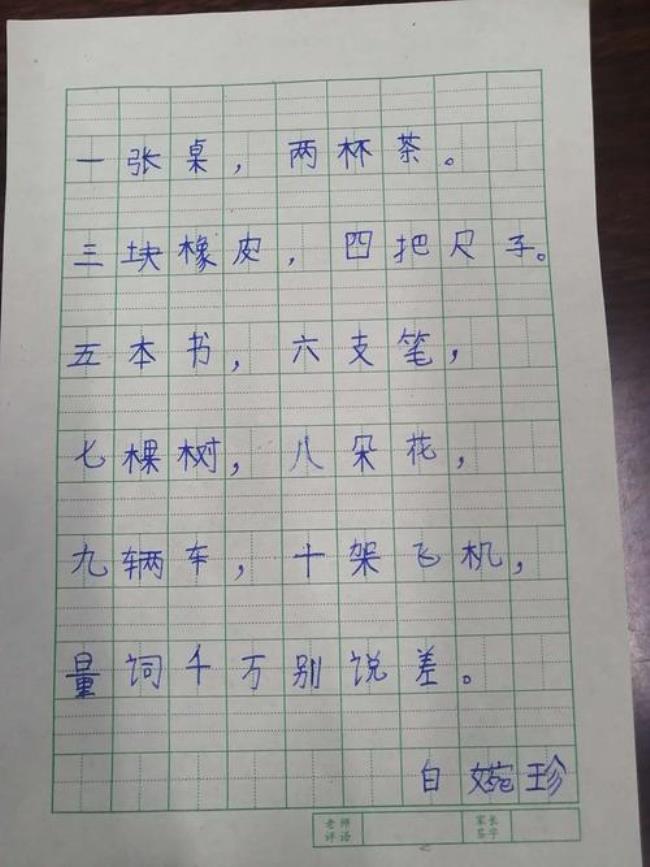 一张桌，两杯茶。
三块橡皮，四把尺子。
五本书，六支笔，
七棵树，八朵花，
九辆车，十架飞机，
量词千万别说差。
自婉珍
老师评语
家长签字